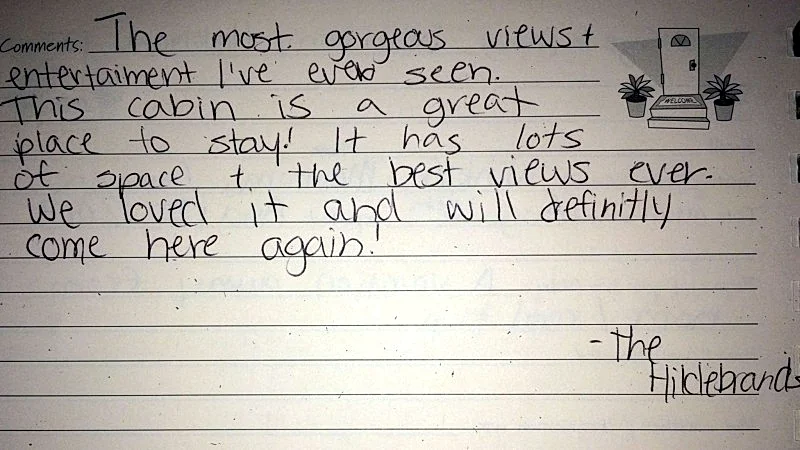 Comments: The most gorgeous views +
entertaiment I've ever seen.
This cabin is a great
place to stay! It has lots
of space + the best views ever.
We loved it and will definitly
come here again!
- The
Hildebrands
WELCOME